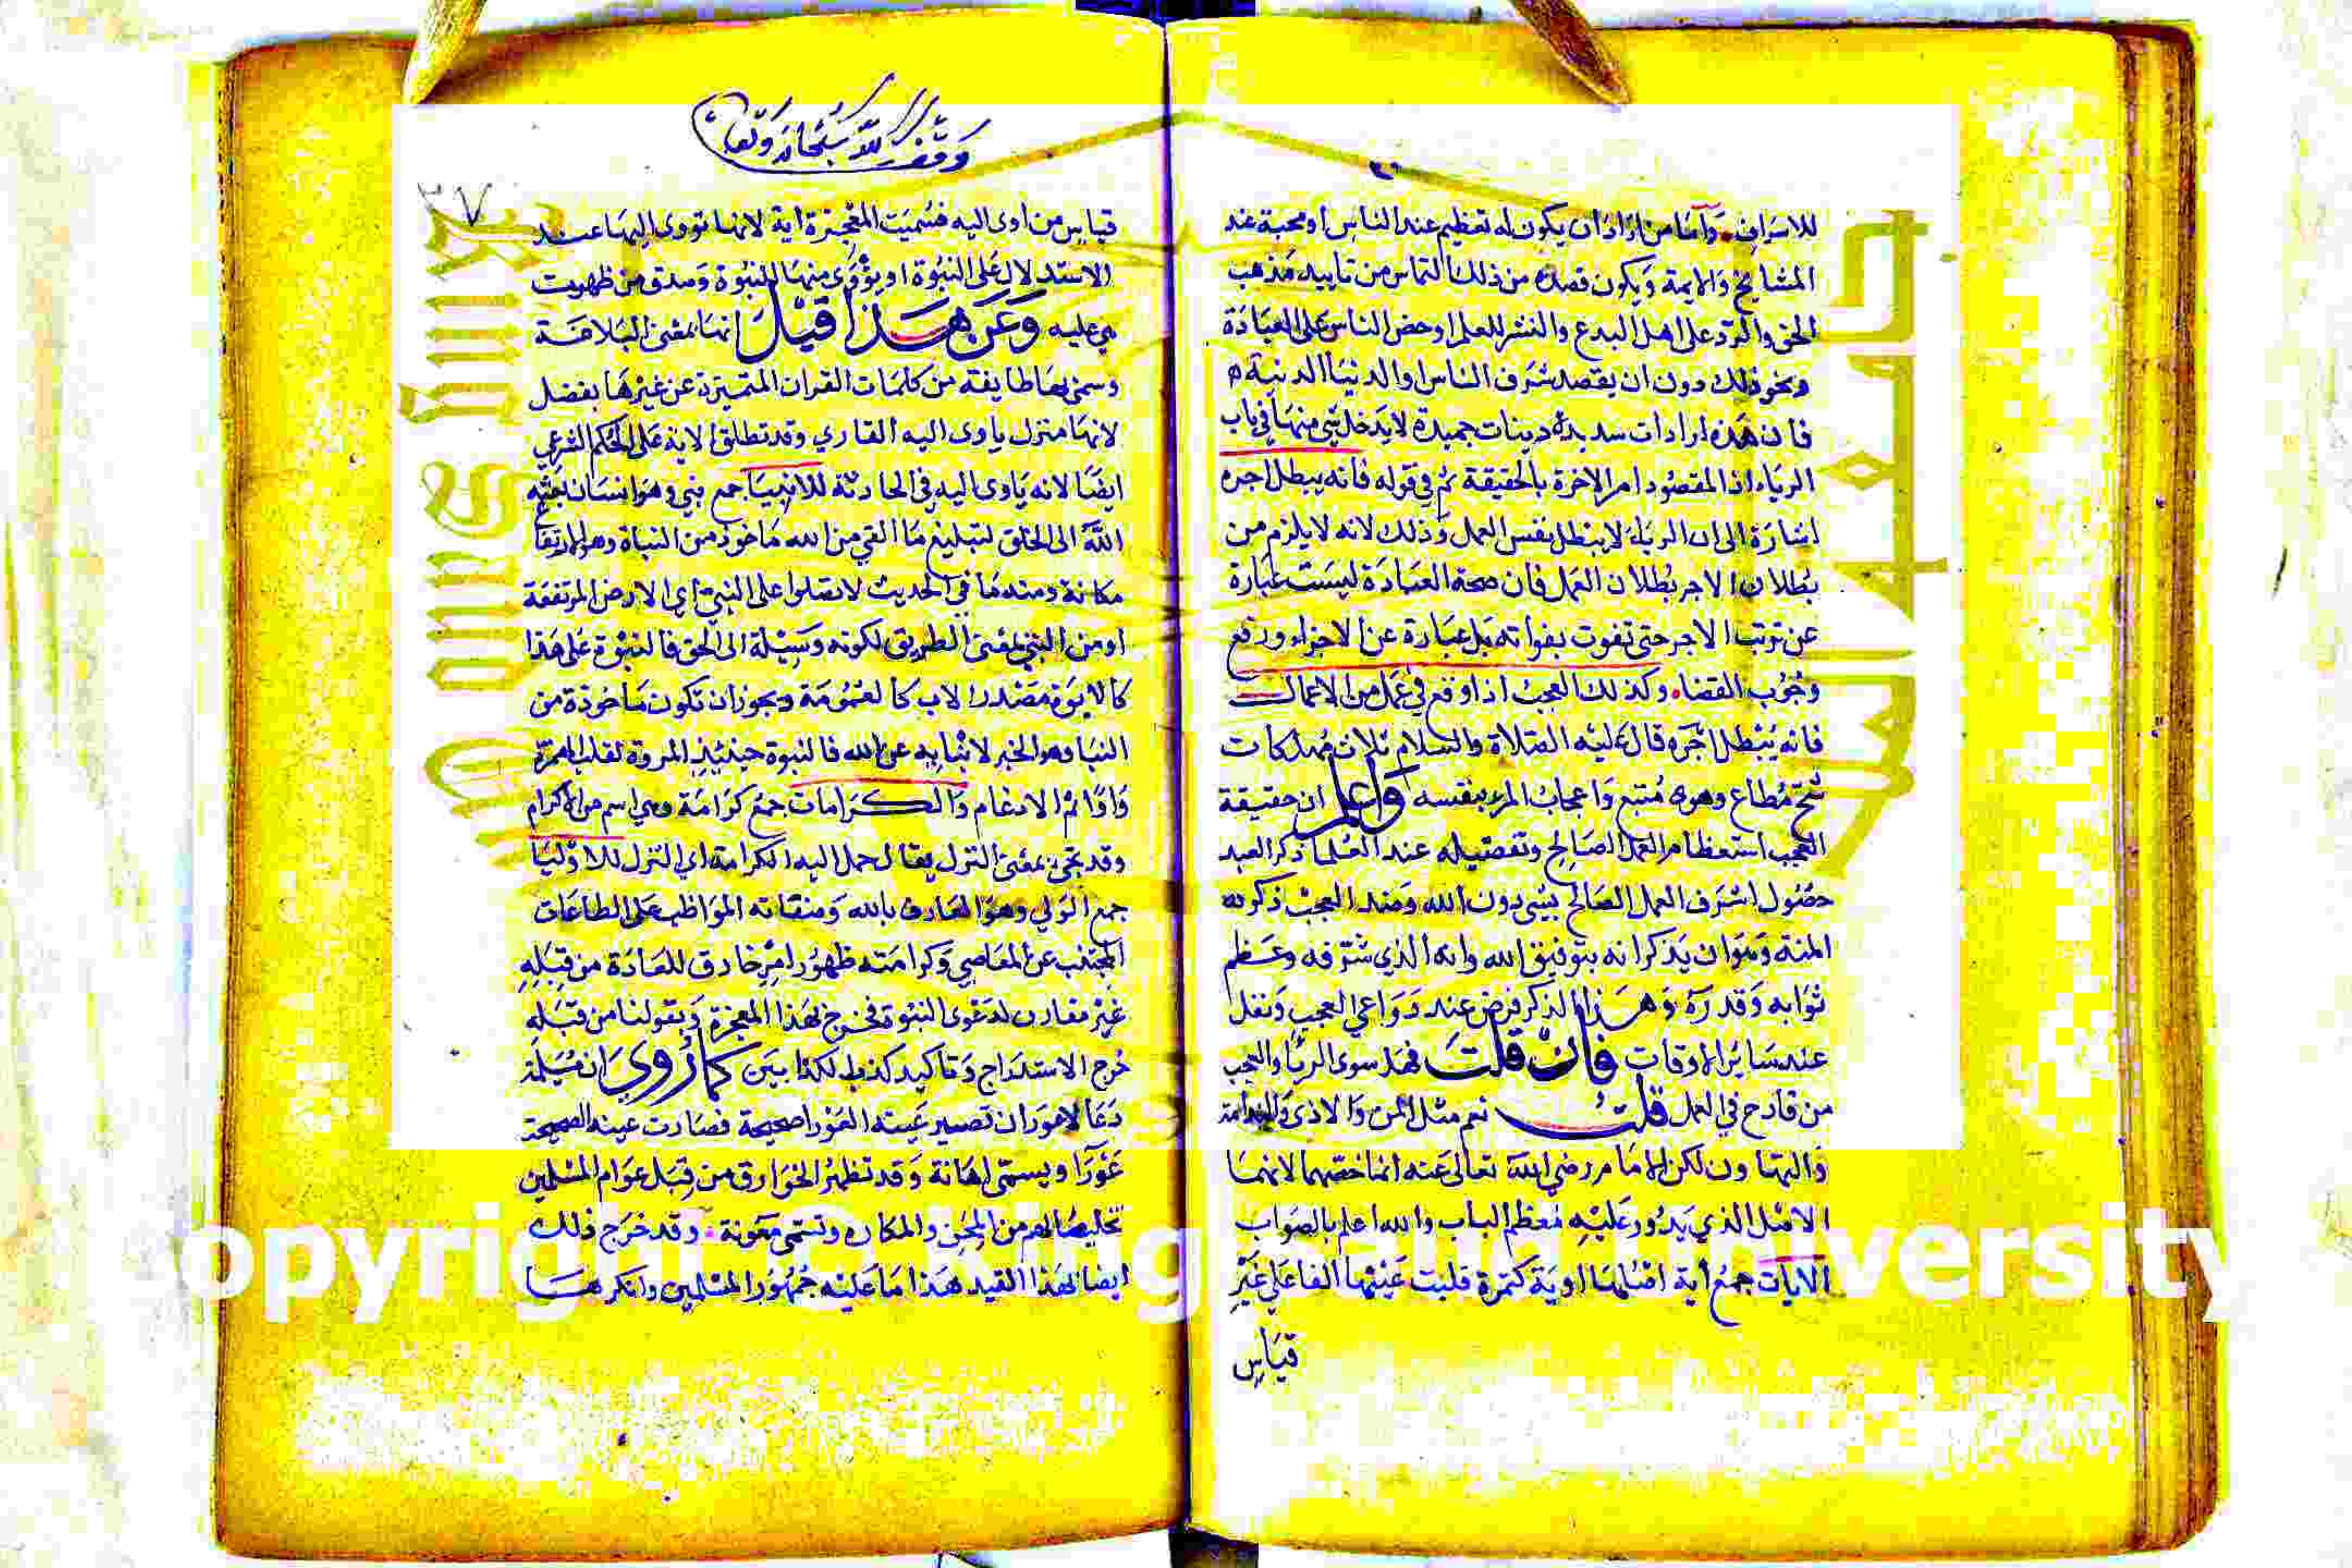 للاسراف وأما من اراد ان يكون له تعظيم عند الناس او محبة عند
المشايخ والايمة ويكون قصده من ذلك التماس من تاييد مذهب
الحق والرد على اهل البدع والنشر للعلم او حض الناس على العبادة
ونحو ذلك دون ان يقصد شرف الناس او الدنيا الدنية
فان هذه ارادات سديدة ونيات حميدة لا يدخل شي منها في باب
الرياء اذ المقصود امر الاخرة بالحقيقة ثم في قوله فانه يبطل اجره
اشارة الى ان الرياء لا يبطل نفس العمل وذلك لانه لا يلزم من
بطلان الاجر بطلان العمل فان صحة العبادة ليست عبارة
عن ترتب الاجر حتى تفوت بفواته بل عبارة عن الاجزاء ورفع
وجوب القضاء وكذلك العجب اذا وقع في عمل من الاعمال
فانه يبطل اجره قال عليه الصلاة والسلام ثلاث مهلكات
شح مطاع وهوى متبع واعجاب المرء بنفسه واعلم ان حقيقة
العجب استعظام العمل الصالح وتفصيله عند العلما ذكر العبد
حصول شرف العمل الصالح بشي دون الله وضد العجب ذكره
المنة وهو ان يذكر انه بتوفيق الله وانه الذي شرفه وعظم
ثوابه وقدره وهذا الذكر فرض عند دواعي العجب ونفل
عند سائر الاوقات فان قلت فهل سوى الريا والعجب
من قادح في العمل قلت نعم مثل المن والاذى والندامة
والتهاون لكن الامام رضي الله تعالى عنه انما خصهما لانهما
الامثل الذي يدور عليه معظم الباب والله اعلم بالصواب
الايات جمع آية اصلها اوية كتمرة قلبت عينها الفا على غير
قياس
وقف لله سبحانه وتعالى
٢٧
قياس من اوى اليه فسميت المعجزة اية لانها تووى اليها عند
الاستدلال على النبوة او يؤوى منها النبوة وصدق من ظهرت
هي عليه وعن هذا قيل انها بمعنى العلامة
وسمى بها طايفة من كلمات القران المتميزة عن غيرها بفصل
لانها منزل ياوى اليه القاري وقد تطلق الاية على الحكم الشرعي
ايضا لانه ياوى اليه في الحادثة للانبيا جمع نبي وهو انسان بعثه
الله الى الخلق لتبليغ ما القي من الله ماخوذ من النباة وهو المرتفعا
مكانة ومنه ما في الحديث لا تصلوا على النبي اي الارض المرتفعة
او من النبي بمعنى الطريق لكونه وسيلة الى الحق فالنبوة على هذا
كالابوة مصدر الاب كالعمومة ويجوز ان تكون ماخوذة من
النبا وهو الخبر لانبايه عن الله فالنبوة حينيذ المروة لقلب الهمزة
واوا ثم الادغام والكرامات جمع كرامة وهي اسم من الاكرام
وقد تجي بمعنى النزل يقال حمل اليه الكرامة اي النزل للاوليا
جمع الولي وهو العارف بالله وصفاته المواظب على الطاعات
المجتنب عن المعاصي وكرامته ظهور امر خارق للعادة من قبله
غير مقارن لدعوى النبوة فخرج بهذا المعجزة وبقولنا من قبله
خرج الاستدراج وتاكيد كذب الكذابين كما روي ان مسيلمة
دعا لاعور ان تصير عينه العورا صحيحة فصارت عينه الصحيحة
عورا ويسمى اهانة وقد تظهر الخوارق من قبل عوام المسلمين
تخليصا لهم من المحن والمكاره وتسمى معونة وقد خرج ذلك
ايضا بهذا القيد هذا ما عليه جمهور المسلمين وانكرها
opyright © King Saud University